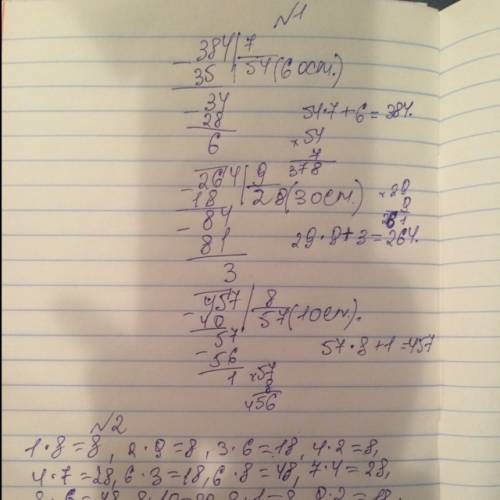 №1
384 | 7
35 | 54 (6 ост.)
34
28
6
54·7+6=384.
×54
7
378
264 | 9
18 | 29 (3 ост.)
84
81
3
×29
9
261
29·9+3=264.
457 | 8
40 | 57 (1 ост.).
57
56
1
57·8+1=457
×57
8
456
№2
1·8=8, 2·9=8, 3·6=18, 4·2=8,
4·7=28, 6·3=18, 6·8=48, 7·4=28,